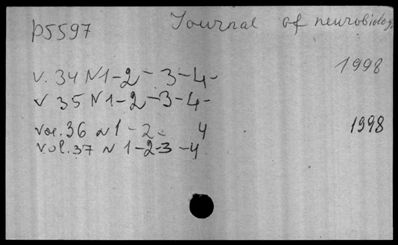 p5597 Journal of neurobiolog
v. 34 N1-2-3-4- 1998
v 35 N1-2-3-4-
vol. 36 N1-2- 4 1998
vol. 37 N 1-2-3-4